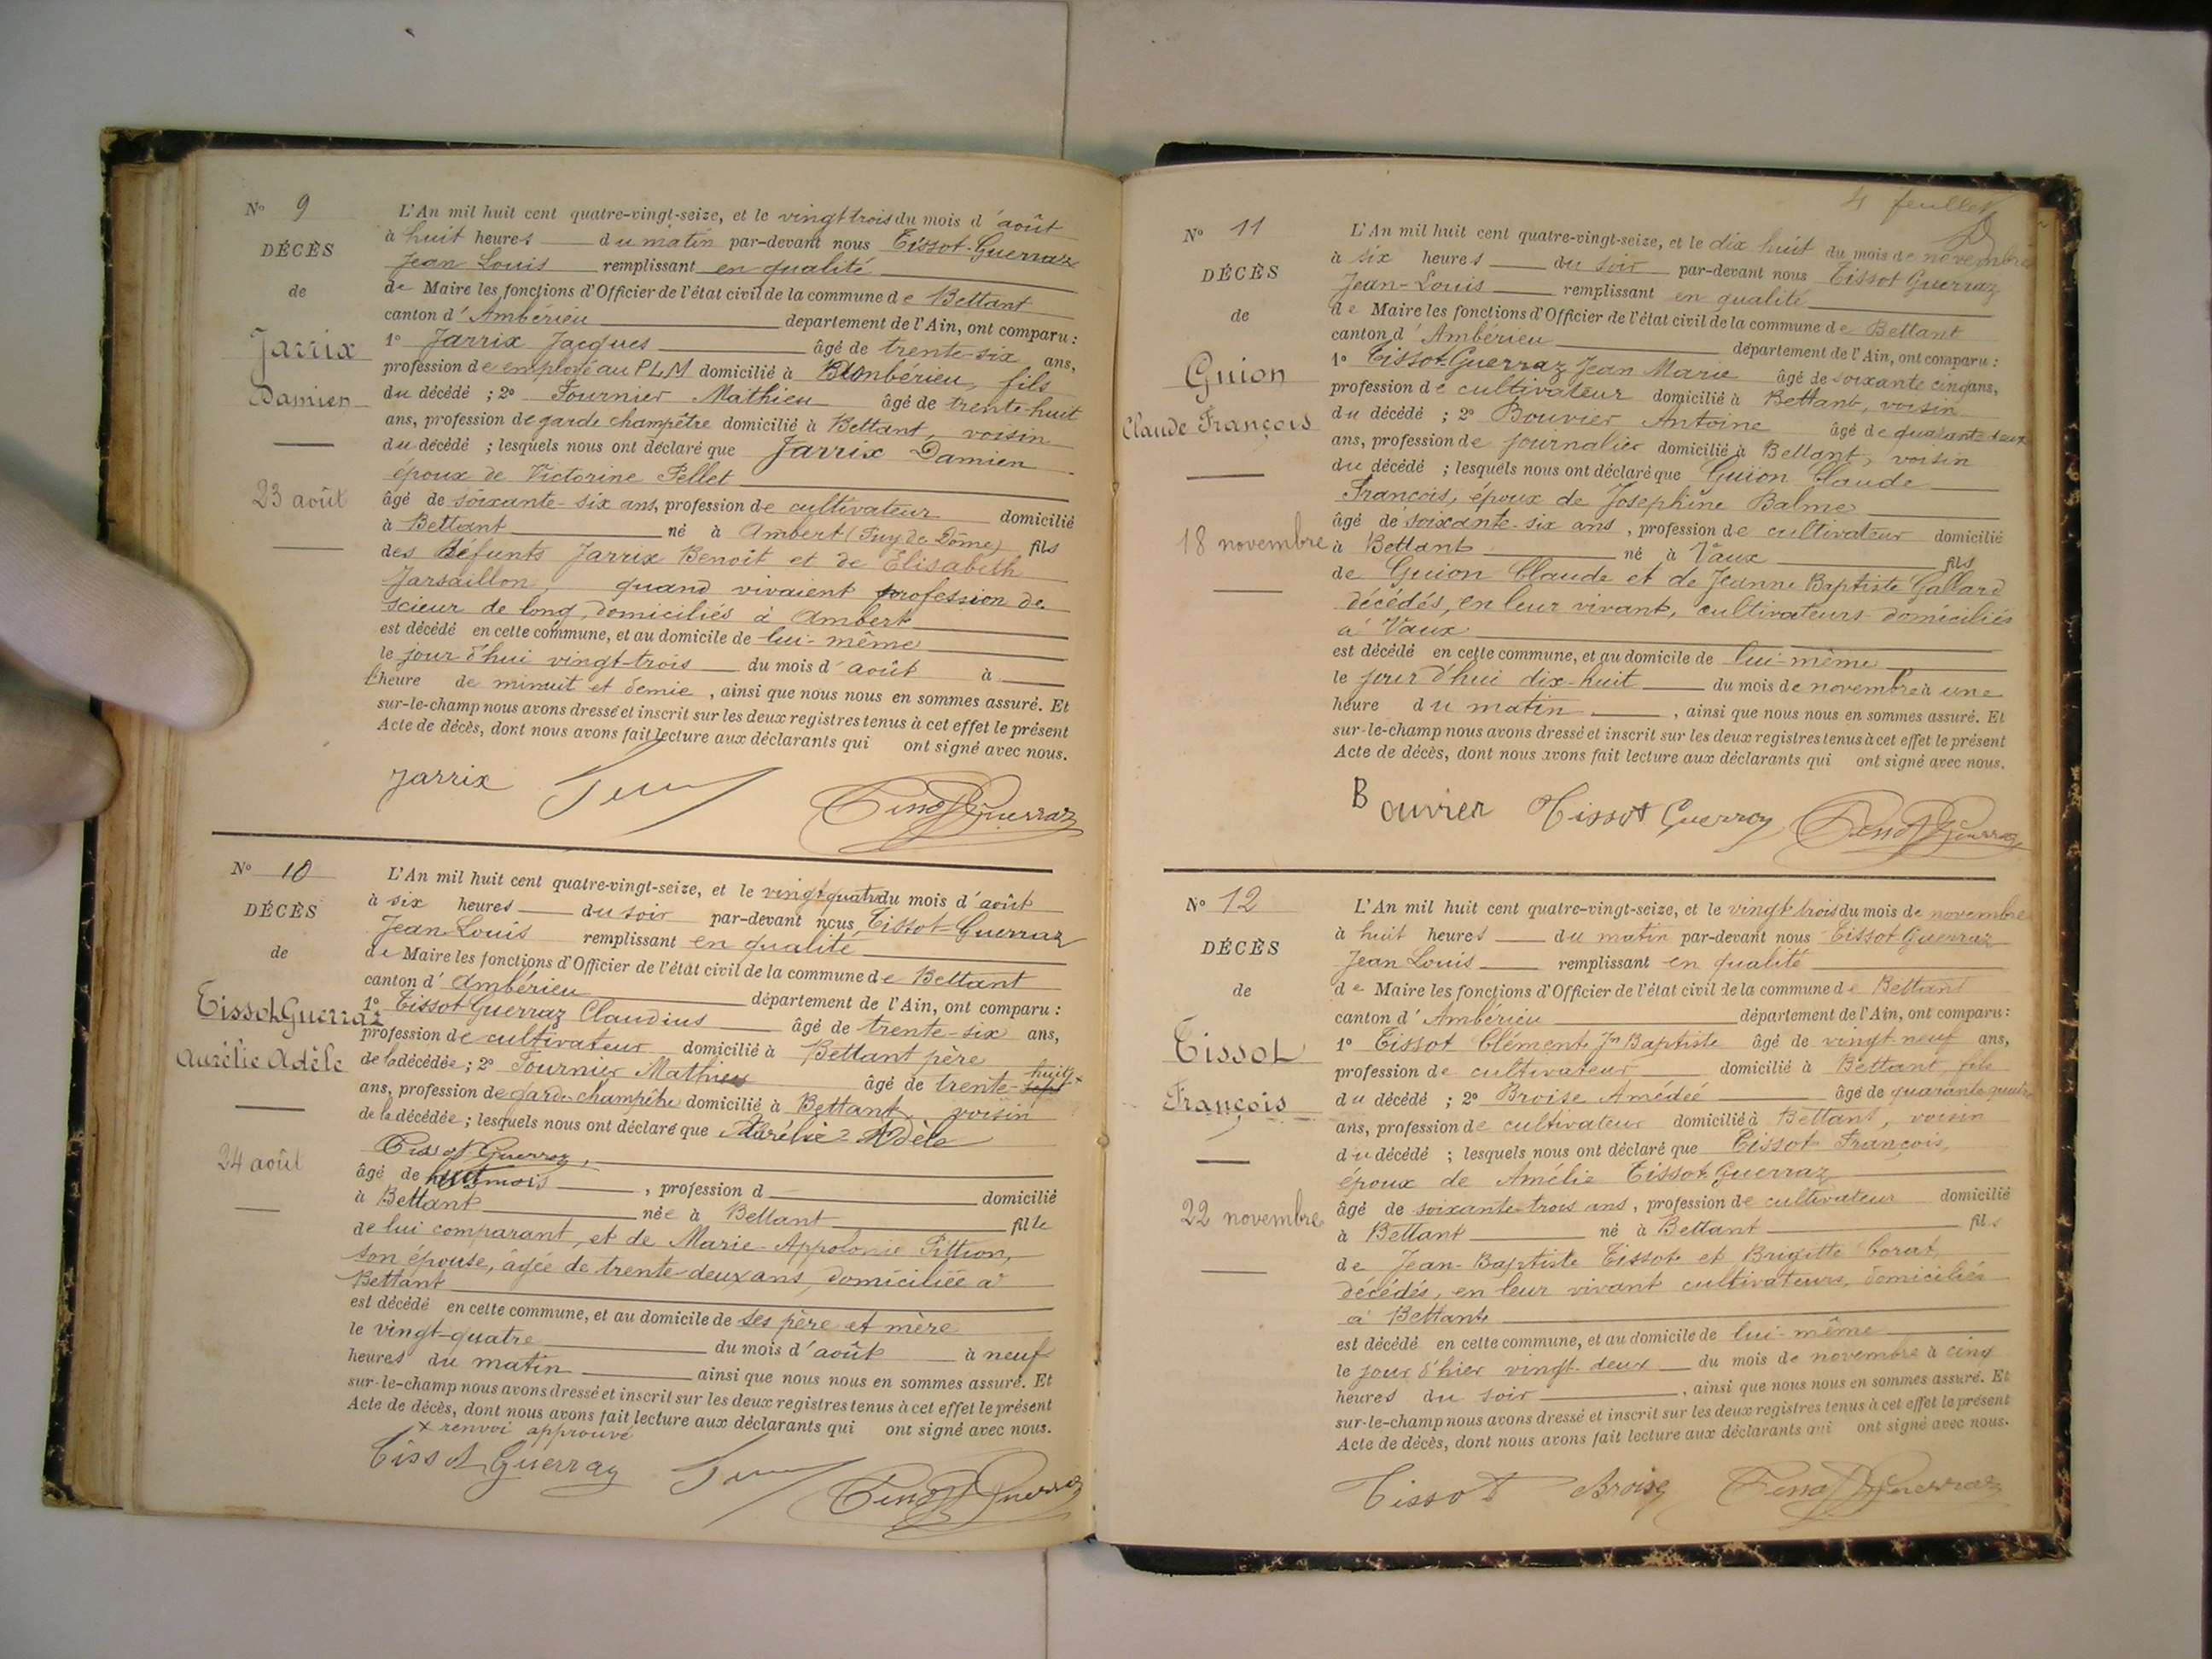 N° 9
DÉCÈS
de
Jarrix
Damien
23 août
L'An mil huit cent quatre-vingt-seize, et le vingt trois du mois d'août
à huit heures du matin par-devant nous Tissot-Guerraz
Jean Louis remplissant en qualité
de Maire les fonctions d'Officier de l'état civil de la commune de Bettant
canton d'Ambérieu département de l'Ain, ont comparu :
1° Jarrix Jacques âgé de trente-six ans,
profession de employé au PLM domicilié à Ambérieu, fils
du décédé ; 2° Fournier Mathieu âgé de trente huit
ans, profession de garde champêtre domicilié à Bettant, voisin
du décédé ; lesquels nous ont déclaré que Jarrix Damien
époux de Victorine Pellet
âgé de soixante-six ans, profession de cultivateur domicilié
à Bettant né à Ambert (Puy de Dôme) fils
des défunts Jarrix Benoît et de Elisabeth
Jarsaillon, quand vivaient profession de
scieur de long, domiciliés à Ambert
est décédé en cette commune, et au domicile de lui-même
le jour d'hui vingt-trois du mois d'août à
l'heure de minuit et demie, ainsi que nous nous en sommes assuré. Et
sur-le-champ nous avons dressé et inscrit sur les deux registres tenus à cet effet le présent
Acte de décès, dont nous avons fait lecture aux déclarants qui ont signé avec nous.
Jarrix Tissot Guerraz
N° 10
DÉCÈS
de
Tissot Guerraz
Aurélie Adèle
24 août
L'An mil huit cent quatre-vingt-seize, et le vingt quatre du mois d'août
à six heures du soir par-devant nous Tissot-Guerraz
Jean Louis remplissant en qualité
de Maire les fonctions d'Officier de l'état civil de la commune de Bettant
canton d'Ambérieu département de l'Ain, ont comparu :
1° Tissot Guerraz Claudius âgé de trente-six ans,
profession de cultivateur domicilié à Bettant père
de la décédée ; 2° Fournier Mathieu âgé de trente-sept huit x
ans, profession de garde champêtre domicilié à Bettant, voisin
de la décédée ; lesquels nous ont déclaré que Aurélie Adèle
Tissot Guerraz,
âgé de huit mois, profession d domicilié
à Bettant née à Bettant fille
de lui comparant, et de Marie-Appolonie Pittion,
son épouse, âgée de trente-deux ans, domiciliée à
Bettant
est décédé en cette commune, et au domicile de ses père et mère
le vingt-quatre du mois d'août à neuf
heures du matin ainsi que nous nous en sommes assuré. Et
sur-le-champ nous avons dressé et inscrit sur les deux registres tenus à cet effet le présent
Acte de décès, dont nous avons fait lecture aux déclarants qui ont signé avec nous.
x renvoi approuvé
Tissot Guerraz Tissot Guerraz
4 feuillet
N° 11
DÉCÈS
de
Guion
Claude François
18 novembre
L'An mil huit cent quatre-vingt-seize, et le dix huit du mois de novembre
à six heures du soir par-devant nous Tissot Guerraz
Jean-Louis remplissant en qualité
de Maire les fonctions d'Officier de l'état civil de la commune de Bettant
canton d'Ambérieu département de l'Ain, ont comparu :
1° Tissot-Guerraz Jean Marie âgé de soixante cinq ans,
profession de cultivateur domicilié à Bettant, voisin
du décédé ; 2° Bouvier Antoine âgé de quarante deux
ans, profession de journalier domicilié à Bettant, voisin
du décédé ; lesquels nous ont déclaré que Guion Claude
François, époux de Josephine Balme
âgé de soixante-six ans, profession de cultivateur domicilié
à Bettant né à Vaux fils
de Guion Claude et de Jeanne Baptiste Gallard
décédés, en leur vivant, cultivateurs domiciliés
à Vaux
est décédé en cette commune, et au domicile de lui-même
le jour d'hui dix-huit du mois de novembre à une
heure du matin, ainsi que nous nous en sommes assuré. Et
sur-le-champ nous avons dressé et inscrit sur les deux registres tenus à cet effet le présent
Acte de décès, dont nous avons fait lecture aux déclarants qui ont signé avec nous.
Bouvier Tissot Guerraz Tissot Guerraz
N° 12
DÉCÈS
de
Tissot
François
22 novembre
L'An mil huit cent quatre-vingt-seize, et le vingt trois du mois de novembre
à huit heures du matin par-devant nous Tissot Guerraz
Jean Louis remplissant en qualité
de Maire les fonctions d'Officier de l'état civil de la commune de Bettant
canton d'Ambérieu département de l'Ain, ont comparu :
1° Tissot Clément Jn Baptiste âgé de vingt-neuf ans,
profession de cultivateur domicilié à Bettant, fils
du décédé ; 2° Broise Amédée âgé de quarante quatre
ans, profession de cultivateur domicilié à Bettant, voisin
du décédé ; lesquels nous ont déclaré que Tissot François,
époux de Amélie Tissot Guerraz
âgé de soixante-trois ans, profession de cultivateur domicilié
à Bettant né à Bettant fils
de Jean-Baptiste Tissot et Brigitte Corat,
décédés, en leur vivant cultivateurs, domiciliés
à Bettant
est décédé en cette commune, et au domicile de lui-même
le jour d'hier vingt-deux du mois de novembre à cinq
heures du soir, ainsi que nous nous en sommes assuré. Et
sur-le-champ nous avons dressé et inscrit sur les deux registres tenus à cet effet le présent
Acte de décès, dont nous avons fait lecture aux déclarants qui ont signé avec nous.
Tissot Broise Tissot Guerraz